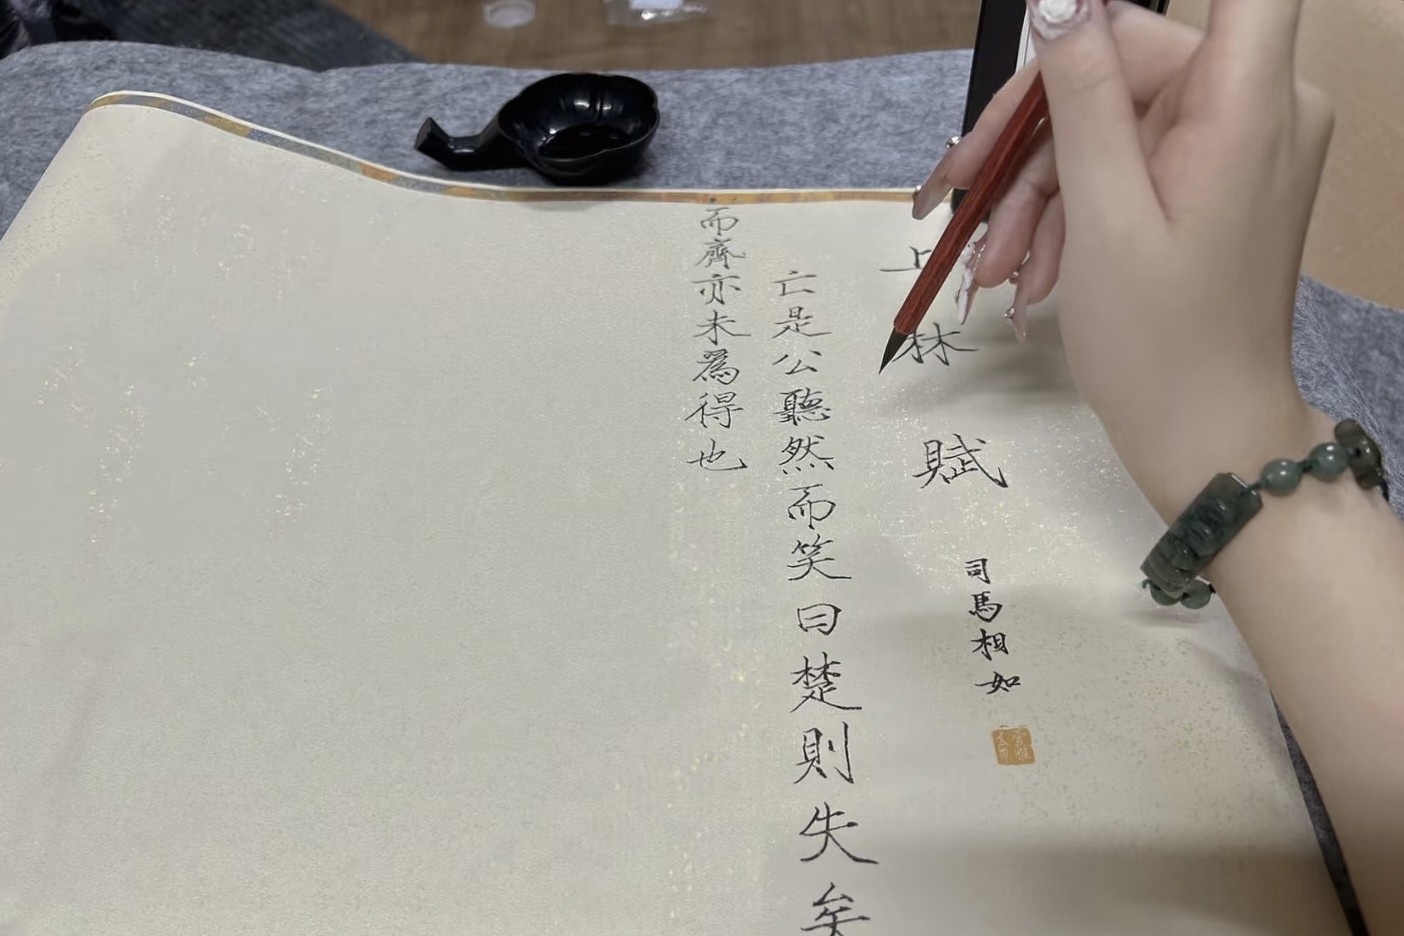 上林賦
司馬相如
亡是公聽然而笑曰楚則失矣
而齊亦未為得也